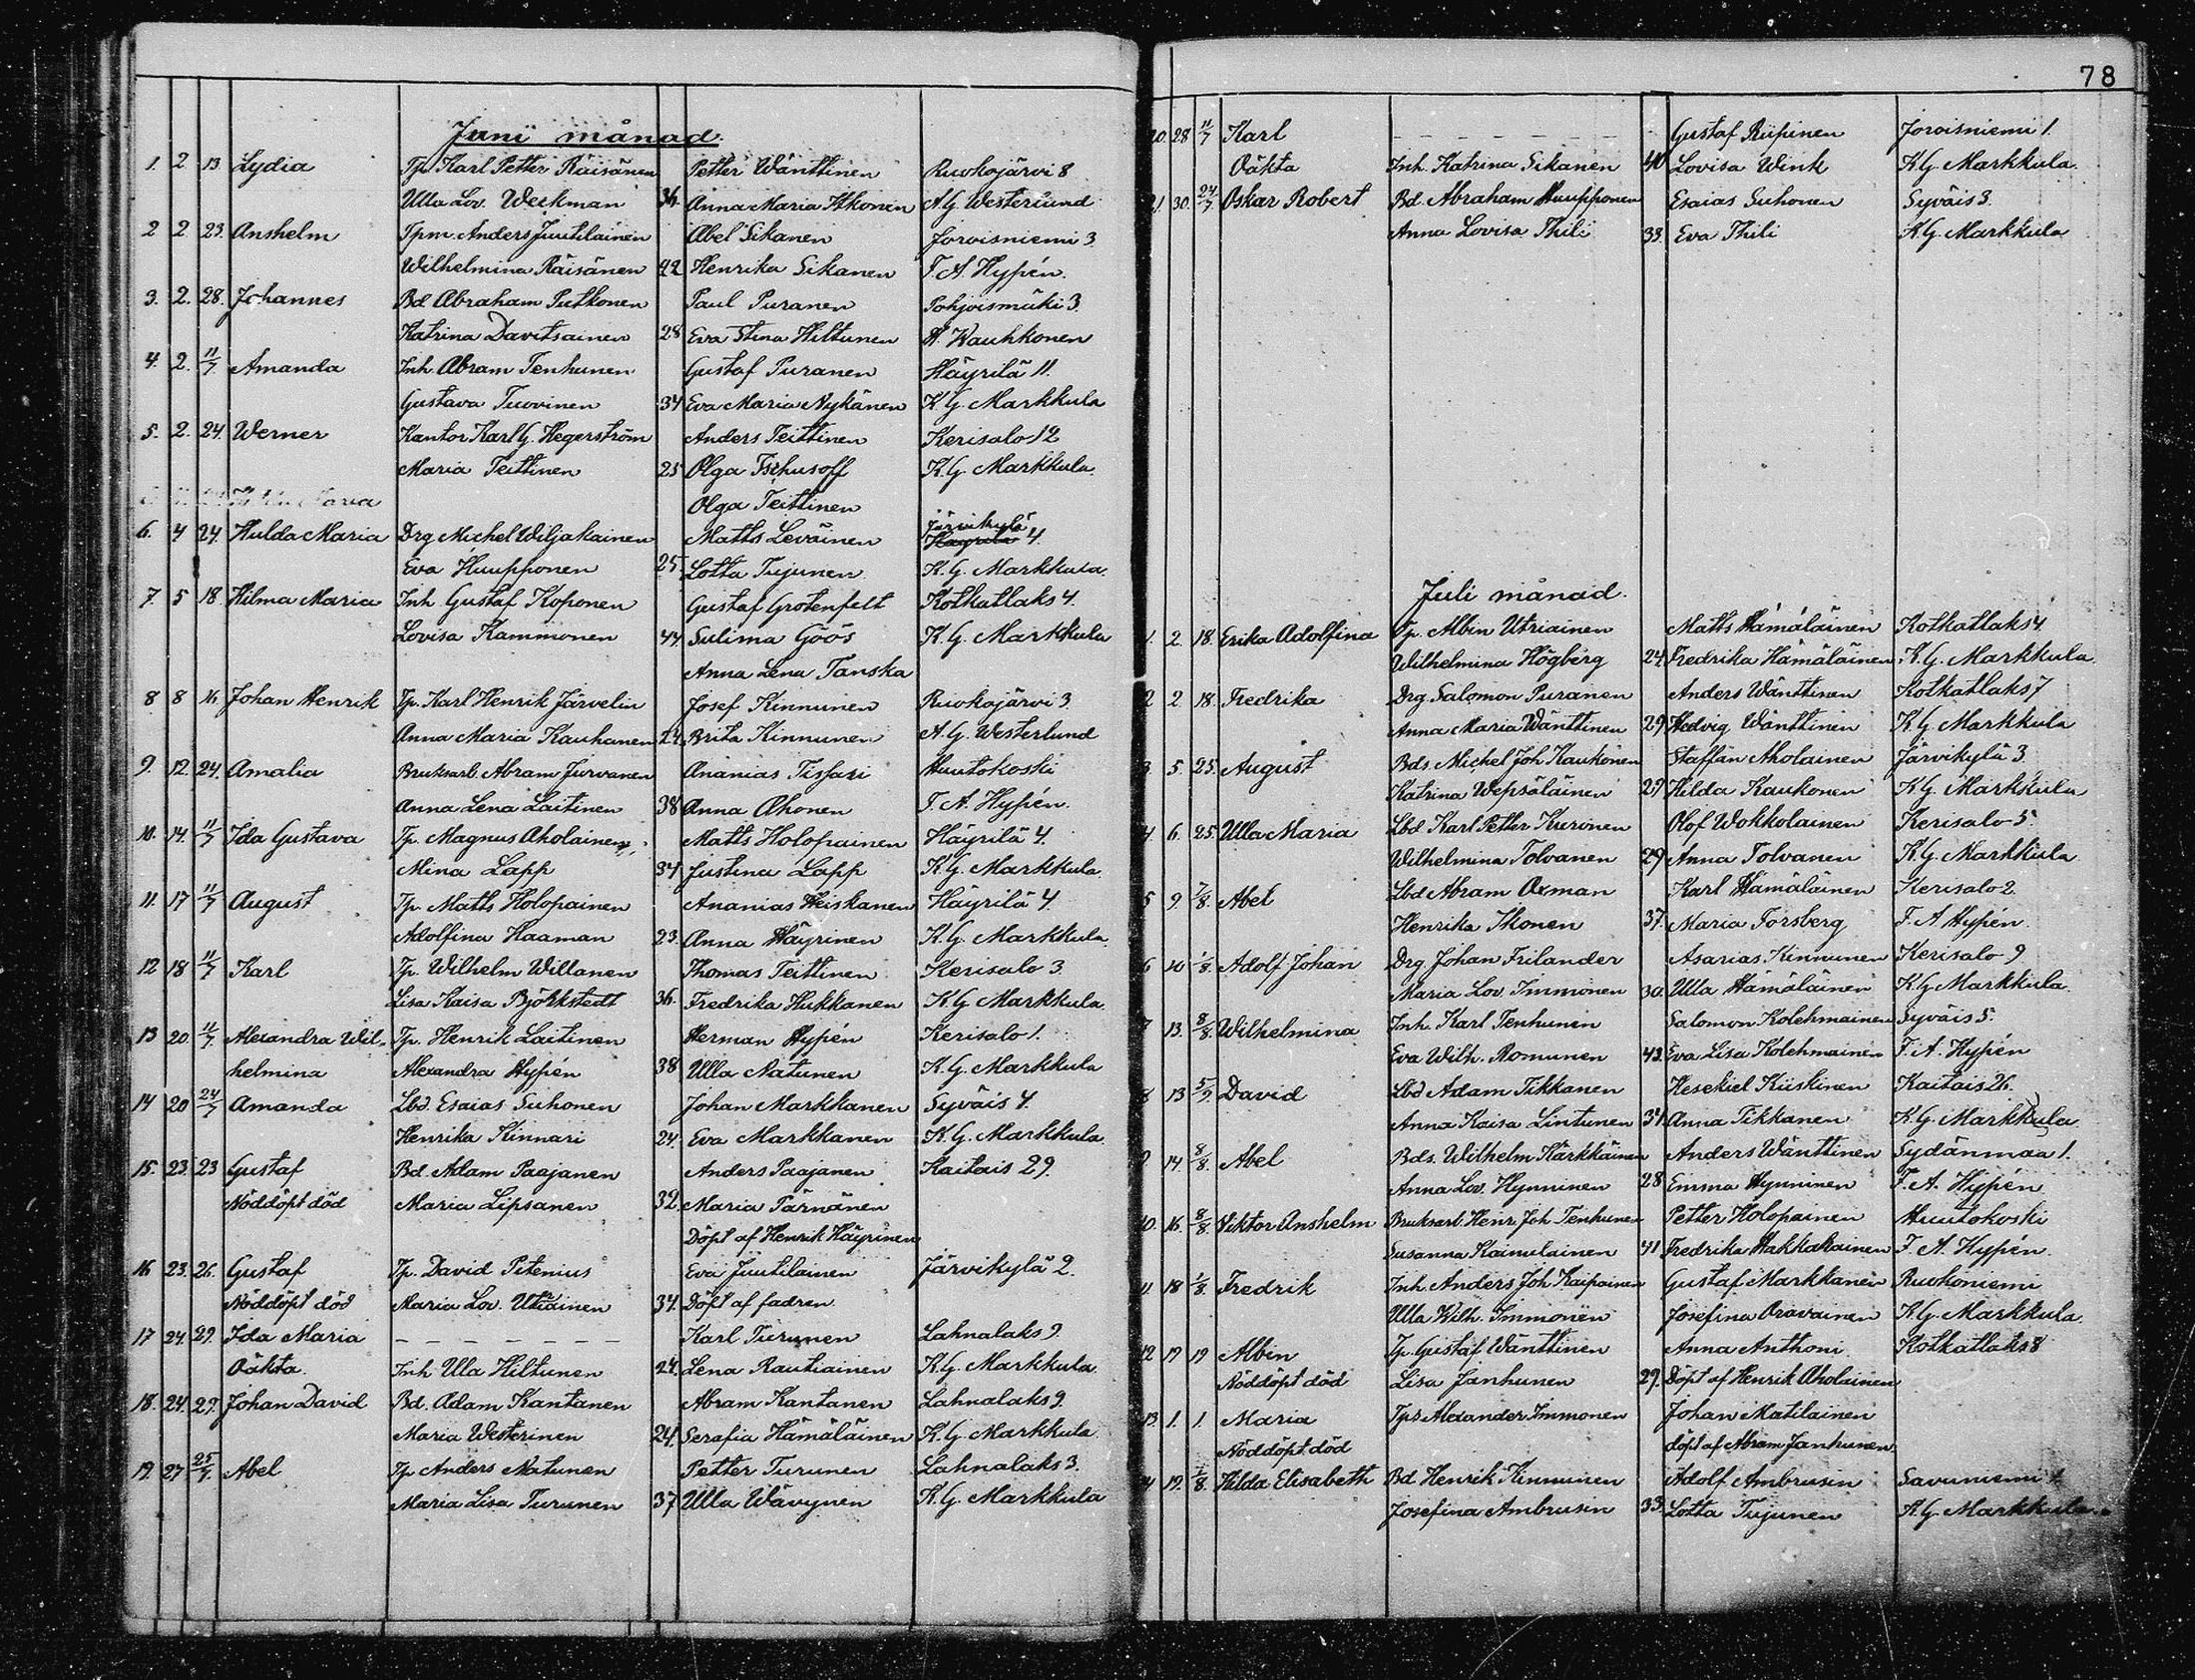 Juni månad.
1. 2 13 Lydia Tp. Karl Petter Räisänen Petter Wänttinen Ruokojärvi 8
Ulla Lov. Weckman 36. Anna Maria Ikonen A. G. Westerlund
2 2 23. Anshelm Tpm. Anders Juutilainen Abel Sikanen Joroisniemi 3
Wilhelmina Räisänen 42 Henrika Sikanen F. A. Hypén.
3. 2. 28. Johannes Bd Abraham Putkonen Paul Puranen Pohjoismäki 3.
Katrina Davitsainen 28 Eva Stina Hiltunen A. Kauhkonen
4. 2. 11/7 Amanda Inh Abram Tenhunen Gustaf Puranen Häyrilä 11.
Gustava Tuovinen 34 Eva Maria Nykänen K. G. Markkula
5. 2. 24. Werner Kantor Karl G. Hegerström Anders Teittinen Kerisalo 12
Maria Teittinen 25 Olga Tschusoff K. G. Markkula.
Olga Teittinen
6. 4 24. Hulda Maria Drg Michel Wiljakainen Matts Leväinen Järvikylä Häyrilä 4.
Eva Huupponen 25 Lotta Tujunen K. G. Markkula.
7. 5 18. Hilma Maria Inh Gustaf Koponen Gustaf Grotenfelt Kotkatlaks 4.
Lovisa Kammonen 44. Sulima Göös K. G. Markkula
Anna Lena Tanska
8 8 16 Johan Henrik Tp. Karl Henrik Järvelin Josef Kinnunen Ruokojärvi 3.
Anna Maria Kauhanen 24. Brita Kinnunen A. G. Westerlund
9. 12. 24. Amalia Bruksarb. Abram Jurvanen Ananias Tisfari Huutokoski
Anna Lena Laitinen 38 Anna Ahonen F. A. Hypén.
10. 14. 11/7 Ida Gustava Tp. Magnus Aholainen Matts Holopainen Häyrilä 4.
Mina Lapp 34 Justina Lapp K. G. Markkula.
11. 17 11/7 August Tp. Matts Holopainen Ananias Heiskanen Häyrilä 4.
Adolfina Haaman 23. Anna Häyrinen K. G. Markkula.
12 18 11/7 Karl Tp. Wilhelm Willanen Thomas Teittinen Kerisalo 3.
Lisa Kaisa Björkstedt 36. Fredrika Hukkanen K. G. Markkula.
13 20. 11/7. Alexandra Wil- Tp. Henrik Laitinen Herman Hypén Kerisalo 1.
helmina Alexandra Hypén 38 Ulla Natunen K. G. Markkula
14 20 24/7 Amanda Lbd. Esaias Suhonen Johan Markkanen Syväis 4.
Henrika Kinnari 24. Eva Markkanen K. G. Markkula.
15. 23. 23 Gustaf Bd. Adam Paajanen Anders Paajanen Kaitais 29.
Nöddöpt död Maria Lipsanen 32. Maria Pärnänen
Döpt af Henrik Häyrinen
16 23. 26. Gustaf Tp. David Pitenius Eva Juutilainen Järvikylä 2.
Nöddöpt död Maria Lov. Utriainen 34. Döpt af fadren
17 24. 29. Ida Maria – – – – – – – Karl Turunen Lahnalaks 9.
Oäkta. Inh Ulla Hiltunen 24. Lena Rautiainen K. G. Markkula.
18. 24. 29. Johan David Bd. Adam Kantanen Abram Kantanen Lahnalaks 9.
Maria Westerinen 24. Serafia Hämäläinen K. G. Markkula
19. 27 25/7. Abel Tp Anders Natunen Petter Turunen Lahnalaks 3.
Maria Lisa Turunen 37 Ulla Wäyrynen K. G. Markkula
78
20. 28 11/7 Karl – – – – – – – Gustaf Riipinen Joroisniemi 1.
Oäkta Inh. Katrina Sikanen 40 Lovisa Wink K. G. Markkula.
21. 30. 24/7 Oskar Robert Bd. Abraham Huupponen Esaias Suhonen Syväis 3.
Anna Lovisa Thili 33. Eva Thili K. G. Markkula
Juli månad.
1. 2. 18. Erika Adolfina Tp. Albin Utriainen Matts Hämäläinen Kotkatlaks 4.
Wilhelmina Högberg 24. Fredrika Hämäläinen K. G. Markkula.
2 2 18. Fredrika Drg. Salomon Puranen Anders Wänttinen Kotkatlaks 7
Anna Maria Wänttinen 29 Hedvig Wänttinen K. G. Markkula
3. 5. 25. August Bds. Michel Joh Kaukonen Staffan Aholainen Järvikylä 3.
Katrina Wepsäläinen 29 Hilda Kaukonen K. G. Markkula
4. 6. 25. Ulla Maria Lbd Karl Petter Kuronen Olof Wokkolainen Kerisalo 5.
Wilhelmina Tolvanen 29 Anna Tolvanen K. G. Markkula
5 9. 7/8. Abel Lbd Abram Oxman Karl Hämäläinen Kerisalo 2.
Henrika Ikonen 37. Maria Forsberg F. A. Hypén.
6 10 1/8. Adolf Johan Drg. Johan Frilander Asarias Kinnunen Kerisalo 9
Maria Lov. Immonen 30. Ulla Hämäläinen K. G. Markkula.
7 13. 8/8. Wilhelmina Inh. Karl Tenhunen Salomon Kolehmainen Syväis 5.
Eva Wilh. Romunen 43. Eva Lisa Kolehmainen F. A. Hypén
8 13 5/9. David Lbd Adam Tikkanen Hesekiel Kiiskinen Kaitais 26.
Anna Kaisa Lintunen 34. Anna Tikkanen K. G. Markkula
9. 14. 8/8. Abel Bds. Wilhelm Kärkkäinen Anders Wänttinen Sydänmaa 1.
Anna Lov. Hynninen 28 Emma Hynninen F. A. Hypén
10. 16. 8/8. Viktor Anshelm Bruksarb. Henr. Joh. Tenhunen Petter Holopainen Huutokoski
Susanna Kainulainen 41 Fredrika Hakkarainen F. A. Hypén.
11. 18 1/8. Fredrik Inh. Anders Joh. Kaipainen Gustaf Markkanen Ruokoniemi
Ulla Wilh. Immonen Josefina Oravainen K. G. Markkula.
12 19 19 Albin Tp. Gustaf Wänttinen Anna Anthoni Kotkatlaks 8
Nöddöpt död Lisa Janhunen 29. Döpt af Henrik Aholainen
13. 1. 1. Maria Tps Alexander Immonen Johan Matilainen
Nöddöpt död döpt af Abram Janhunen
14 19. 1/8. Hilda Elisabeth Bd. Henrik Kinnunen Adolf Ambrusin Savuniemi
Josefina Ambrusin 33. Lotta Tujunen K. G. Markkula